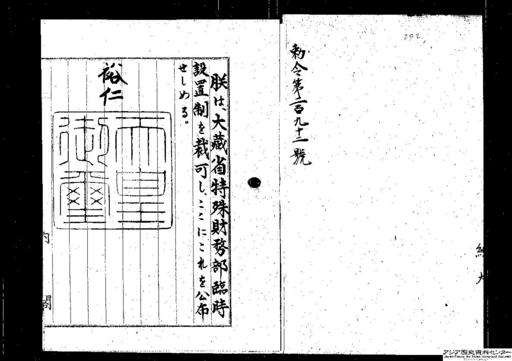 勅令第二百九十二號
朕は、大藏省特殊財務部臨時
設置制を裁可し、ここにこれを公布
せしめる。
裕仁
天皇
御璽
内閣
アジア歴史資料センター